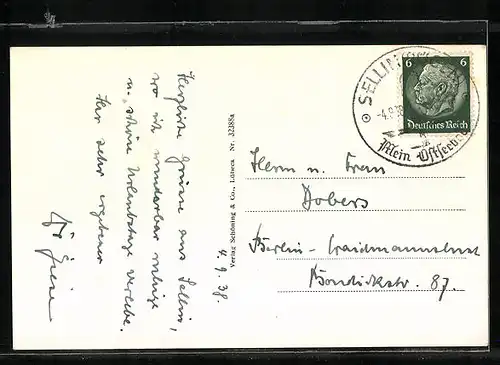 Herzliche Grüsse aus Sellin,
wo ich wunderbar ruhige
u. schöne Urlaubstage verlebe.
Ihr sehr ergebener
4. 9. 38.
Verlag Schöning & Co., Lübeck Nr. 32388a
SELLIN
-4.9.38
Mein Ostseebad
6 6
Deutsches Reich
Herrn u. Frau
Dobers
Berlin-Waidmannslust
Bondickstr. 87.